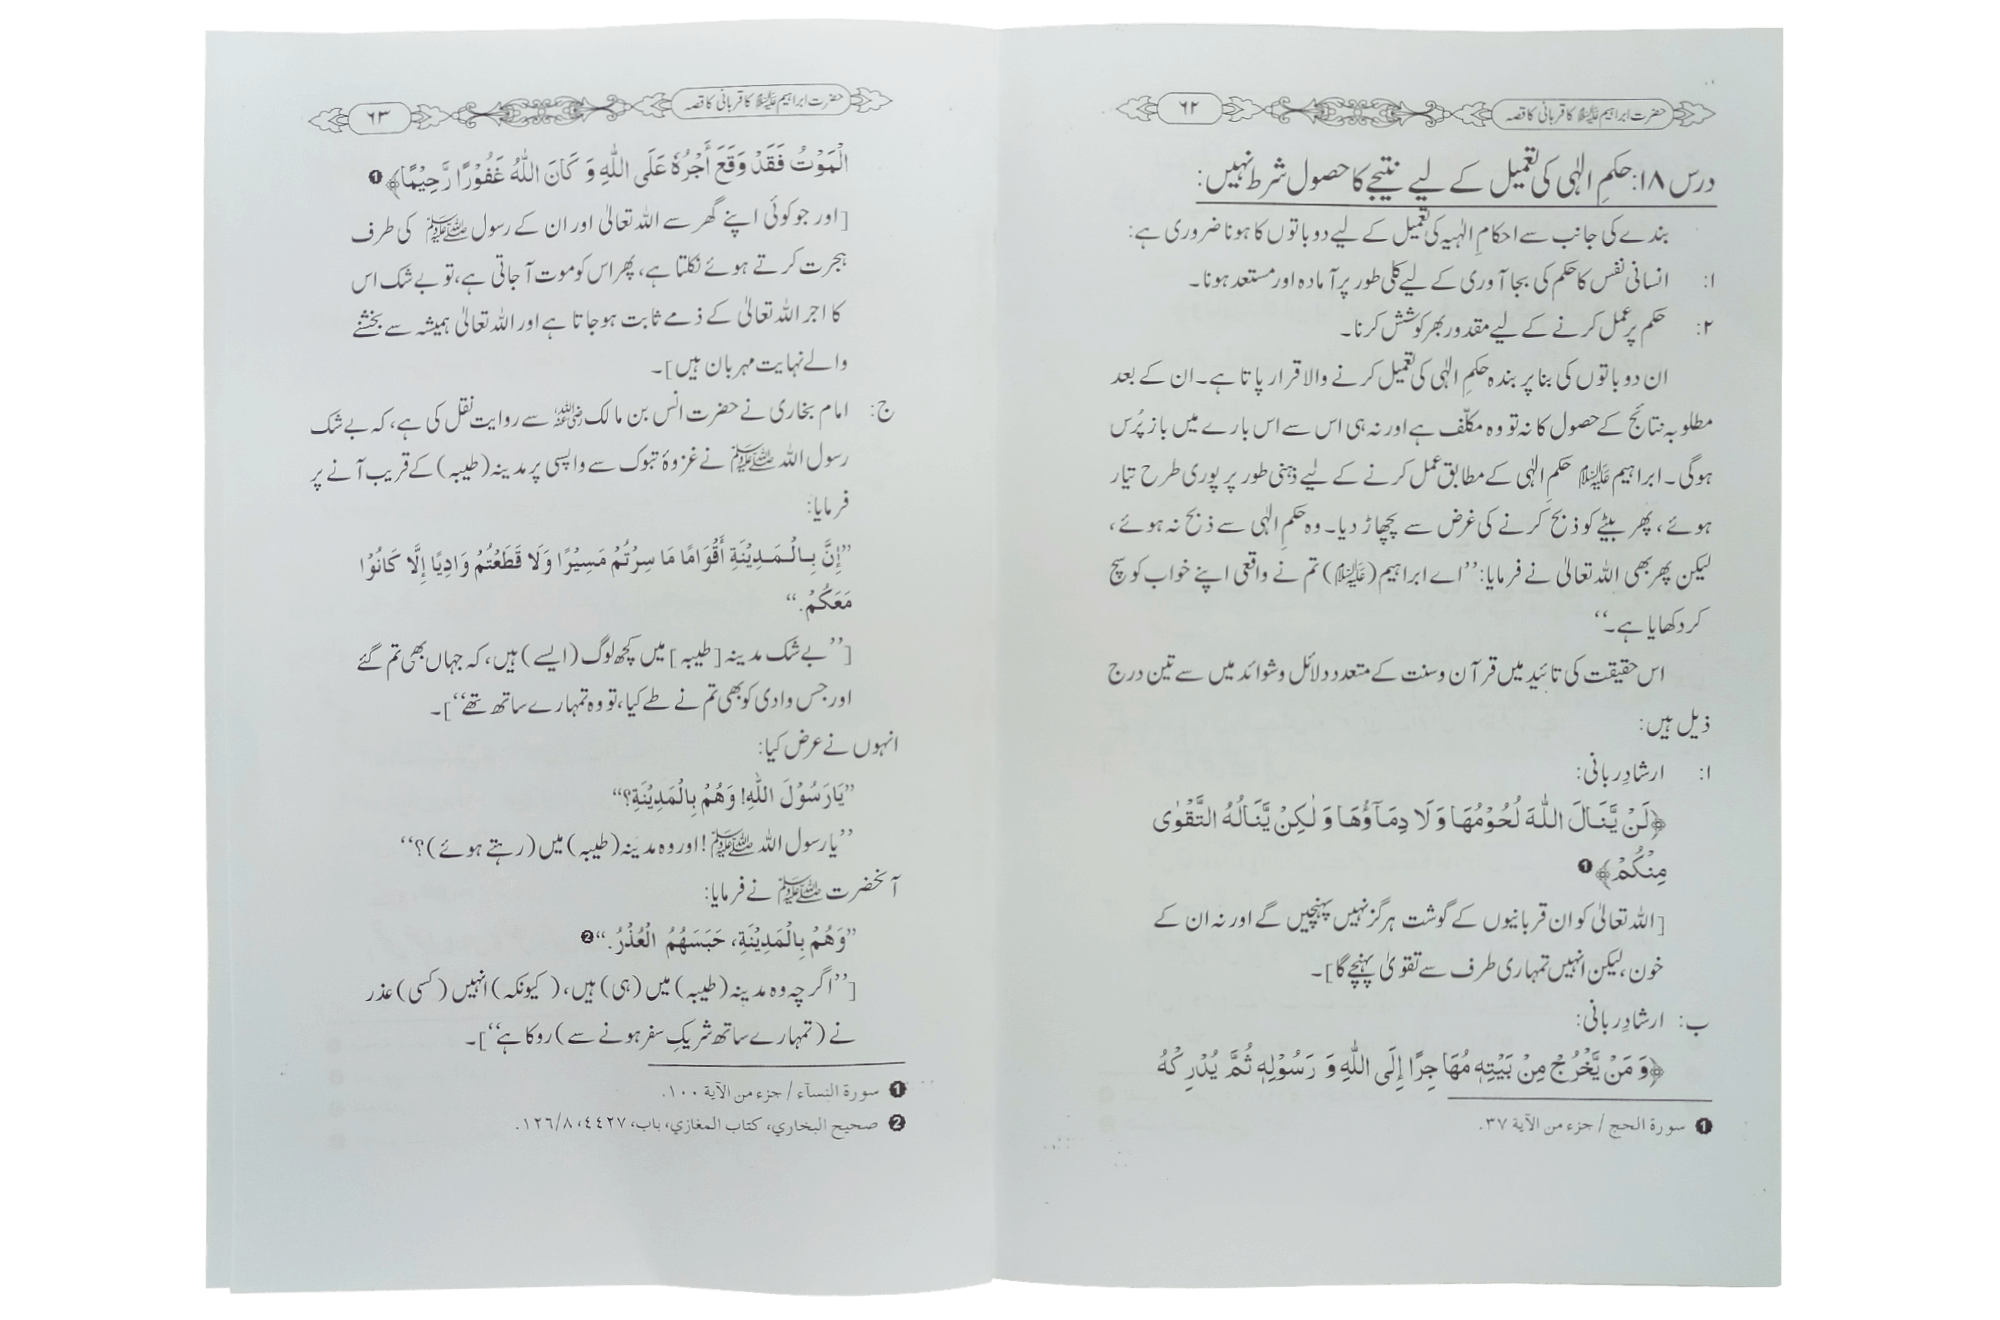 حضرت ابراہیم علیہ السلام کا قربانی کا قصہ ۶۲
درس ۱۸: حکمِ الٰہی کی تعمیل کے لیے نتیجے کا حصول شرط نہیں:
بندے کی جانب سے احکامِ الٰہیہ کی تعمیل کے لیے دو باتوں کا ہونا ضروری ہے:
۱: انسانی نفس کا حکم کی بجا آوری کے لیے کلی طور پر آمادہ اور مستعد ہونا۔
۲: حکم پر عمل کرنے کے لیے مقدور بھر کوشش کرنا۔
ان دو باتوں کی بنا پر بندہ حکمِ الٰہی کی تعمیل کرنے والا قرار پاتا ہے۔ ان کے بعد
مطلوبہ نتائج کے حصول کا نہ تو وہ مکلّف ہے اور نہ ہی اس سے اس بارے میں باز پُرس
ہوگی۔ ابراہیم علیہ السلام حکمِ الٰہی کے مطابق عمل کرنے کے لیے ذہنی طور پر پوری طرح تیار
ہوئے، پھر بیٹے کو ذبح کرنے کی غرض سے پچھاڑ دیا۔ وہ حکمِ الٰہی سے ذبح نہ ہوئے،
لیکن پھر بھی اللہ تعالیٰ نے فرمایا: ’’اے ابراہیم (علیہ السلام) تم نے واقعی اپنے خواب کو سچ
کر دکھایا ہے۔‘‘
اس حقیقت کی تائید میں قرآن و سنت کے متعدد دلائل و شواہد میں سے تین درج
ذیل ہیں:
ا: ارشادِ ربانی:
﴿لَنْ يَّنَالَ اللّٰهَ لُحُوْمُهَا وَلَا دِمَآؤُهَا وَلٰكِنْ يَّنَالُهُ التَّقْوٰى
مِنْكُمْ﴾ ❶
[اللہ تعالیٰ کو ان قربانیوں کے گوشت ہرگز نہیں پہنچیں گے اور نہ ان کے
خون، لیکن انہیں تمہاری طرف سے تقویٰ پہنچے گا]۔
ب: ارشادِ ربانی:
﴿وَ مَنْ يَّخْرُجْ مِنْ بَيْتِهٖ مُهَاجِرًا اِلَى اللّٰهِ وَ رَسُوْلِهٖ ثُمَّ يُدْرِكْهُ
❶ سورة الحج / جزء من الآية ۳۷.
حضرت ابراہیم علیہ السلام کا قربانی کا قصہ ۶۳
الْمَوْتُ فَقَدْ وَقَعَ أَجْرُهٗ عَلَى اللّٰهِ وَ كَانَ اللّٰهُ غَفُوْرًا رَّحِيْمًا﴾ ❶
[اور جو کوئی اپنے گھر سے اللہ تعالیٰ اور ان کے رسول ﷺ کی طرف
ہجرت کرتے ہوئے نکلتا ہے، پھر اس کو موت آ جاتی ہے، تو بے شک اس
کا اجر اللہ تعالیٰ کے ذمے ثابت ہو جاتا ہے اور اللہ تعالیٰ ہمیشہ سے بخشنے
والے نہایت مہربان ہیں]۔
ج: امام بخاری نے حضرت انس بن مالک رضی اللہ عنہ سے روایت نقل کی ہے، کہ بے شک
رسول اللہ ﷺ نے غزوۂ تبوک سے واپسی پر مدینہ (طیبہ) کے قریب آنے پر
فرمایا:
’’إِنَّ بِالْمَدِيْنَةِ أَقْوَامًا مَا سِرْتُمْ مَسِيْرًا وَلَا قَطَعْتُمْ وَادِيًا إِلَّا كَانُوْا
مَعَكُمْ.‘‘
[’’بے شک مدینہ [طیبہ] میں کچھ لوگ (ایسے) ہیں، کہ جہاں بھی تم گئے
اور جس وادی کو بھی تم نے طے کیا، تو وہ تمہارے ساتھ تھے‘‘]۔
انہوں نے عرض کیا:
’’يَارَسُوْلَ اللّٰهِ! وَهُمْ بِالْمَدِيْنَةِ؟‘‘
’’یا رسول اللہ ﷺ! اور وہ مدینہ (طیبہ) میں (رہتے ہوئے)؟‘‘
آنحضرت ﷺ نے فرمایا:
’’وَهُمْ بِالْمَدِيْنَةِ، حَبَسَهُمُ الْعُذْرُ.‘‘ ❷
[’’اگرچہ وہ مدینہ (طیبہ) میں (ہی) ہیں، (کیونکہ) انہیں (کسی) عذر
نے (تمہارے ساتھ شریکِ سفر ہونے سے) روکا ہے‘‘]۔
❶ سورة النسآء / جزء من الآية ۱۰۰.
❷ صحيح البخاري، كتاب المغازي، باب، ٤٤٢٧، ١٢٦/٨.